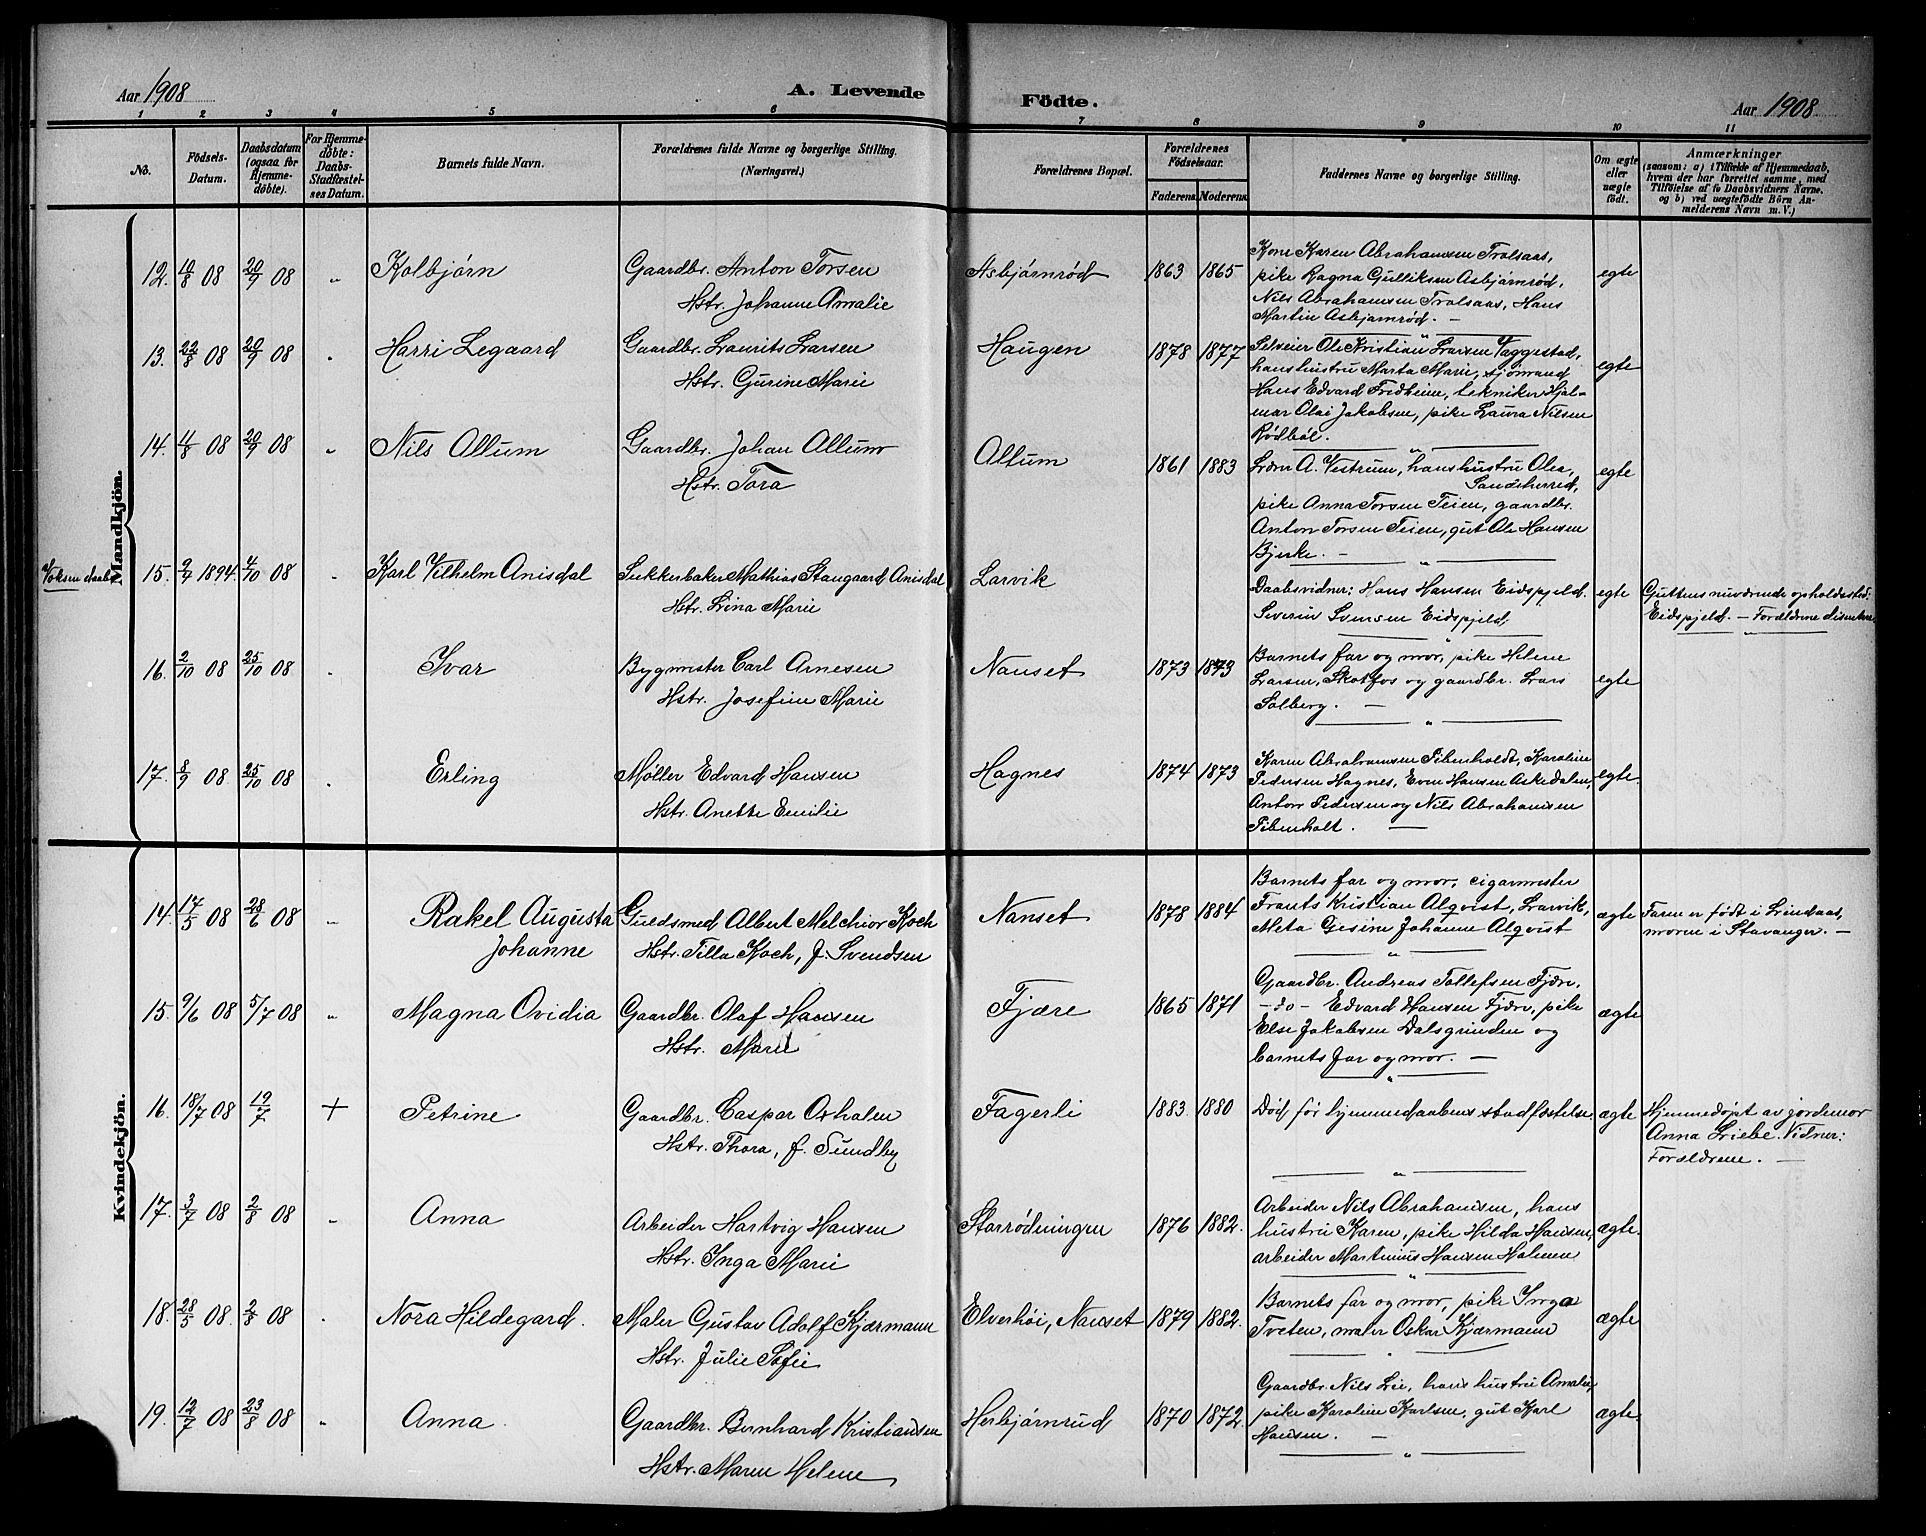 Aar 1908
A. Levende
Födte.
Aar 1908
1 2 3 4 5 6 7 8 9 10 11
No.
Födsels-
Datum.
Daabsdatum
(ogsaa for
Hjemme-
döbte).
For Hjemme-
döbte:
Daabs-
Stadfæstel-
ses Datum.
Barnets fulde Navn.
Forældrenes fulde Navne og borgerlige Stilling.
(Næringsvei.)
Forældrenes Bopæl.
Forældrenes
Födselsaar.
Faderens. Moderens.
Faddernes Navne og borgerlige Stilling.
Om ægte
eller
uægte
födt.
Anmærkninger
(saasom: a) i Tilfælde af Hjemmedaab,
hvem der har forrettet samme, med
Tilföielse af to Daabsvidners Navne.
og b) ved uægtefödte Börn An-
melderens Navn m. V.)
Mandkjön.
12. 10/8 08 20/9 08 " Kolbjørn
Gaardbr. Anton Torsen
Hstr. Johanne Amalie
Asbjørnrød 1863 1865
Kone Karen Abrahamsen Trolsaas,
pike Ragna Gulliksen Asbjørnrød,
Nils Abrahamsen Trolsaas, Hans
Martin Asbjørnrød. —
egte
13. 22/8 08 20/9 08 " Harri Legaard
Gaardbr. Laurits Larsen
Hstr. Gurine Marie
Haugen 1878 1877
Selveier Ole Kristian Larsen Vaggestad,
hans hustru Marta Marie, sjömand
Hans Edvard Fridheim, tekniker Hjal-
mar Olai Jakobsen, pike Laura Nilsen
Rødbøl.
egte
14. 4/8 08 20/9 08 " Nils Allum
Gaardbr. Johan Allum
Hstr. Tora
Allum 1861 1883
Lærer A. Vestrum, hans hustru Olea,
Sandeherred,
pike Anna Torsen Teien, gaardbr.
Anton Torsen Teien, gut Ole Hansen
Bjerke. —
egte
Voksen daab
15. 2/4 1894. 4/10 08 " Karl Vilhelm Anisdal
Sukkerbaker Mathias Staugaard Anisdal
Hstr. Lina Marie
Larvik
Daabsvidner: Hans Hansen Eidspjeld.
Severin Svensen Eidspjeld,
egte
Guttens nuværende opholdssted:
Eidspjeld. — Forældrene dissentere
16. 2/10 08 25/10 08 " Ivar
Bygmester Carl Arnesen
Hstr. Josefine Marie
Nanset 1873 1873
Barnets far og mor, pike Helene
Larsen, Skotfos og gaardbr. Lars
Solberg. —
egte
17. 8/9 08 25/10 08 " Erling
Møller Edvard Hansen
Hstr. Anette Emilie
Hagnes 1874 1873
Karen Abrahamsen Pibenholdt, Karoline
Pedersen Hagnes, Even Hansen Askedalen,
Anton Pedersen og Nils Abrahamsen
Pibenholt. —
egte
Kvindekjön.
14. 17/5 08 28/6 08 " Rakel Augusta
Johanne
Guldsmed Albert Melchior Koch
Hstr. Tilla Koch, f. Svendsen
Nanset 1878 1884
Barnets far og mor, cigarmester
Frants Kristian Alqvist, Larvik,
Meta Gesine Johanne Alqvist
ægte
Faren er født i Lindaas,
moren i Stavanger. —
15. 9/6 08 5/7 08 " Magna Ovidia
Gaardbr. Olaf Hansen
Hstr. Marie
Fjære 1865 1871
Gaardbr. Andreas Tollefsen Fjære,
— do — Edvard Hansen Fjære, pike
Else Jakobsen Dalsgrinden og
barnets far og mor. —
ægte
16. 18/7 08 19/7 + Petrine
Gaardbr. Caspar Oxholm
Hstr. Thora, f. Sundby
Fagerli 1883. 1880
Død før hjemmedaabens stadfæstelse.
ægte
Hjemmedøpt av jordemor
Anna Liebe. Vidner:
Forældrene. —
17. 3/7 08 2/8 08 " Anna
Arbeider Hartvig Hansen
Hstr. Inga Marie
Starrødningen 1876 1882.
Arbeider Nils Abrahamsen, hans
hustru Karen, pike Hilda Hansen,
arbeider Martinius Hansen Holmen
ægte.
18. 28/5 08. 2/8 08 " Nora Hildegard.
Maler Gustav Adolf Kjærmann
Hstr. Julie Sofie
Elverhöi, Nanset 1879 1882.
Barnets far og mor, pike Inga
Tveten, maler Oskar Kjærmann
ægte
19. 12/7 08 23/8 08 " Anna
Gaardbr. Bernhard Kristiansen
Hstr. Maren Helene
Herbjørnrud 1870 1872.
Gaardbr. Nils Lie, hans hustru Amalie,
pike Karoline Karlsen, gut Karl
Hansen. —
ægte